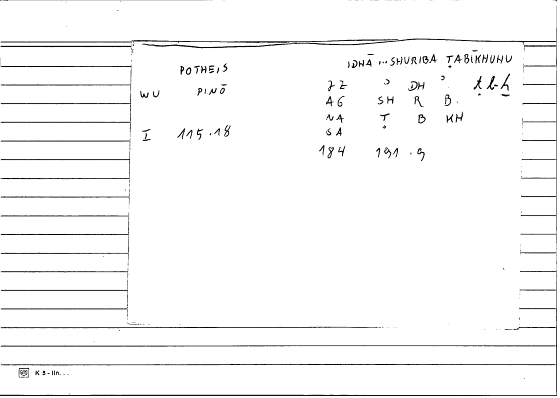 POTHEIS
WU PINŌ
I 115.18
IDHĀ ... SHURIBA ṬABĪKHUHU
ZZ ʾ DH ʾ. ṭbḫ
AG SH R B.
NA Ṭ B KH
SA
184 191.9
K 5 - lln...